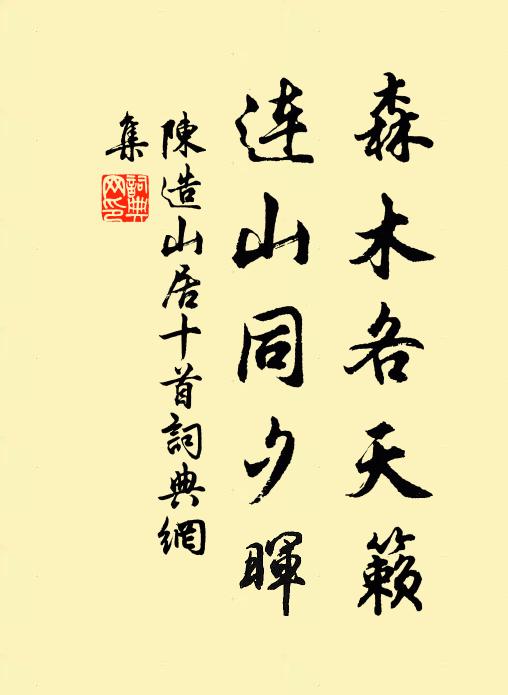 森木各天籟
連山同夕暉
陳造山居十首詞典網
集
詞典
网印